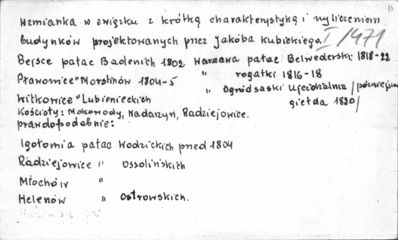 Wzmianka w związku z krótką charakterystyką i wyliczeniem
budynków projektowanych przez Jakóba Kubickiego. I/1471
Bejsce pałac Badenich 1802 Warszawa pałac Belwederski 1818-22
Pławowice " Morstinów 1804-5 " rogatki 1816-18
Witkowice " Lubienieckich " Ogród saski Ujeżdżalnia /późniejsza
giełda 1820/
Kościoły: Mokobody, Nadarzyn, Radziejowice.
prawdopodobnie:
Igołomia pałac Wodzickich przed 1804
Radziejowice " Ossolińskich
Młochów "
Helenów " Ostrowskich.